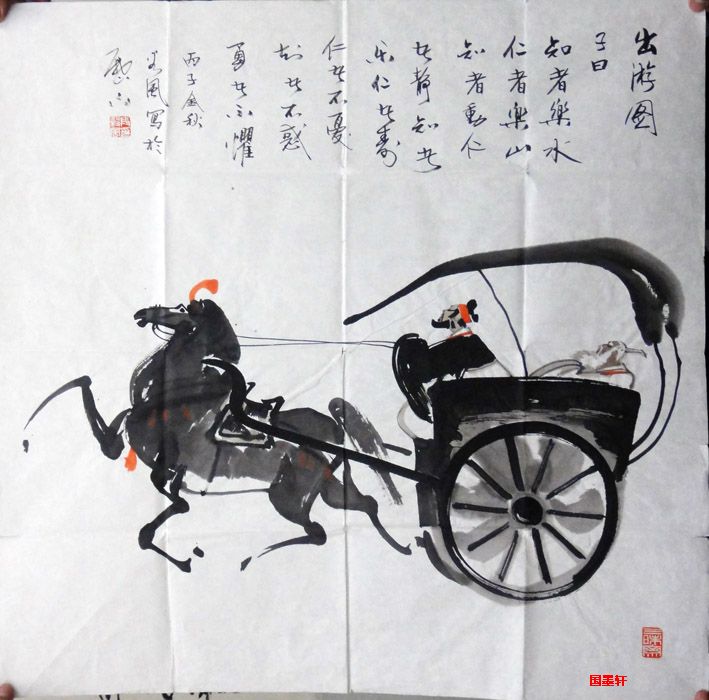 出游图
子曰
知者樂水
仁者樂山
知者動仁
者静知者
乐仁者寿
仁者不憂
知者不惑
勇者不懼
丙子金秋
写於
国墨轩